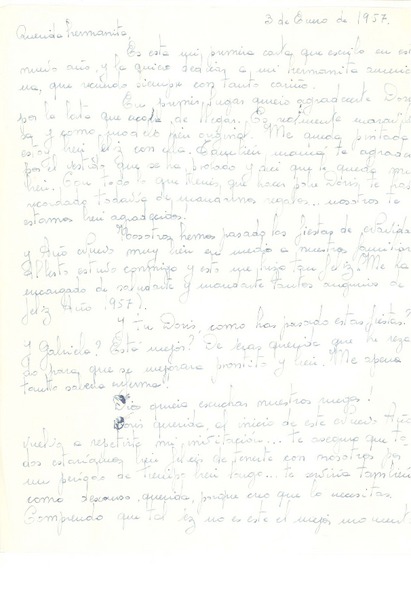 3 de Enero de 1957.
Querida hermanita,
Es esta mi primera carta que escribo en este
nuevo año, y la quiero dedicar a mi hermanita
que recuerdo siempre con tanto cariño.
En primer lugar quiero agradecerte Doris
por la bata que acaba de llegar. Es realmente
y como muy original. Me queda pintada
estoy feliz con ella. También mamá te agradece
por el vestido que se ha probado y así que le queda muy
bien. Con todo lo que tienes que hacer pobre Doris te has
recordado todavía de mandarnos regalos... nosotros te
estamos bien agradecidos.
Nosotros hemos pasado las fiestas de Navidad
y Año Nuevo muy bien en medio a nuestros familiares
Alberto estuvo conmigo y esto me hizo tan feliz. Me ha
encargado de saludarte y mandarte tantos augurios de
feliz Año 1957).
Y tu Doris, como has pasado estas fiestas?
Y Gabriela? Está mejor? De veras quisiera que he
do para que se mejorara prontito y bien. Me apena
tanto saberla enferma!
Dios quiera escuchar nuestros ruegos!
Doris querida, al inicio de este nuevo Año
vuelvo a repetirte mi invitación... te aseguro que to
dos estaríamos bien felices de tenerte con nosotros por
un período de tiempo bien largo... te serviría también
como descanso, querida, porque creo que lo necesitas.
Comprendo que tal vez no es este el mejor momento